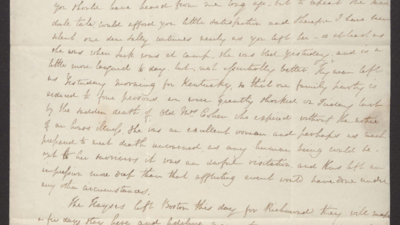 you should have heard from me long ago, but to repeat the same
dull tale could afford you little satisfaction and therefore I have been
silent our dear Sally continues nearly as you left her as
she was when such was at camp. she was bled yesterday, and is a
little more languid to day but not essentially better left
us yesterday morning for Kentucky, so that our family party is
reduced to four persons we were greatly shocked on Tuesday last
by the sudden death of old Mrs Cohen who expired without the notice
of an hour's illness, She was an excellent woman and perhaps as well
prepared to meet death unwarned as any human being could be
to her nieces it was an awful visitation and has left an
impression more deep than that afflicting event would have done under
any other circumstances.
The Hayses left Boston this day for Richmond they will
a few days they have